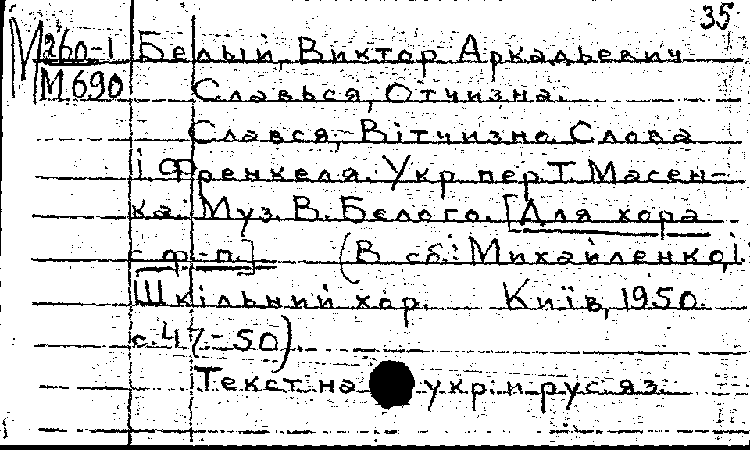 35
М 260-1 Белый, Виктор Аркадьевич
М 690 Славься, Отчизна.
Славcя, Вітчизно. Слова
І. Френкеля. Укр. пер. Т. Масен-
ка. Муз. В. Белого. [Для хора
с ф.-п.] (В сб.: Михайленко, І.
Шкільний хор. Київ, 1950.
с. 47-50).
Текст на укр. и рус. яз.